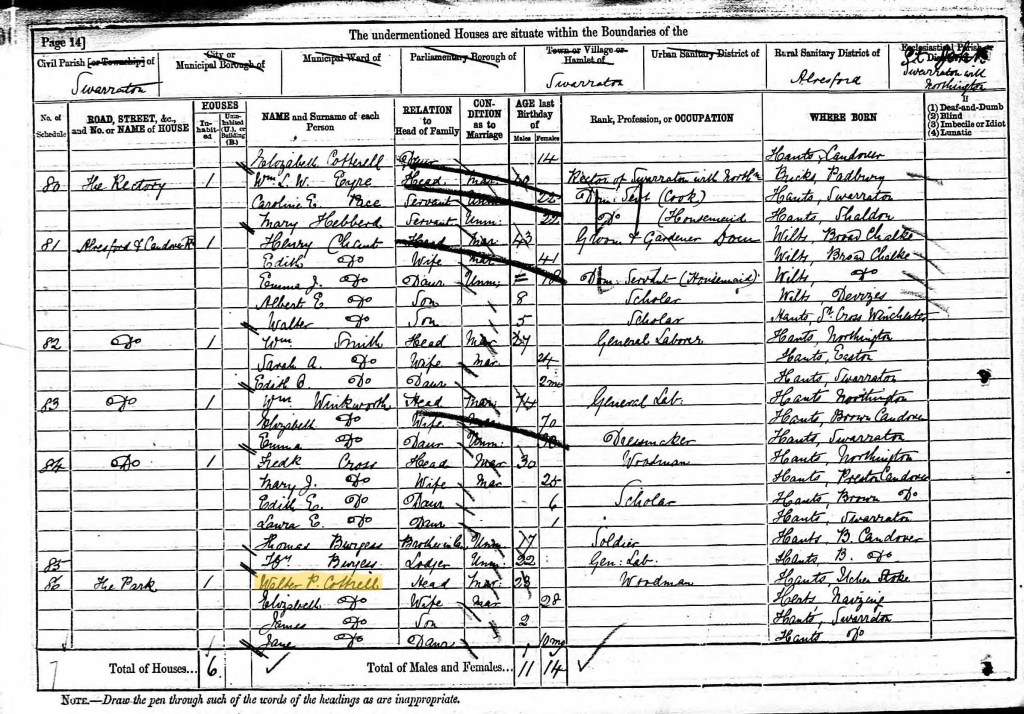 Page 14]
The undermentioned Houses are situate within the Boundaries of the
Civil Parish [or Township] of
Swarraton
City or
Municipal Borough of
Municipal Ward of
Parliamentary Borough of
Town or Village or
Hamlet of
Swarraton
Urban Sanitary District of
Rural Sanitary District of
Alresford
Ecclesiastical Parish or
Swarraton with
Northington
No. of Schedule
ROAD, STREET, &c., and No. or NAME of HOUSE
HOUSES
Inhabited
Uninhabited (U.), or Building (B.)
NAME and Surname of each Person
RELATION to Head of Family
CONDITION as to Marriage
AGE last Birthday of
Males
Females
Rank, Profession, or OCCUPATION
WHERE BORN
If
(1) Deaf-and-Dumb
(2) Blind
(3) Imbecile or Idiot
(4) Lunatic
Elizabeth Cotterell Daur 14 Hants, Candover
80 The Rectory 1 Wm L. W. Eyre Head Mar Rector of Swarraton with North Bucks, Padbury
Caroline E. Pace Servant 22 Dom: Servt (Cook) Hants, Swarraton
Mary Hebberd Servant Unm: 22 Do (Housemaid Hants, Shaldon
81 Alresford & Candover Rd 1 Henry Chant Head Mar 43 Groom & Gardener Dom Wilts, Broad Chalke
Edith Do Wife Mar 41 Wilts, Broad Chalke
Emma J. Do Daur Unm: 18 Dom: Servant (Housemaid) Wilts, Do
Albert E Do Son 8 Scholar Wilts, Devizes
Walter Do Son 5 Scholar Hants, St Cross Winchester
82 Do 1 Wm Smith Head Mar 27 General Laborer Hants, Northington
Sarah A. Do Wife Mar 24 Hants, Easton
Edith B. Do Daur 2mo Hants, Swarraton
83 Do 1 Wm Winkworth Head Mar 74 General Lab. Hants Northington
Elizabeth Do Wife 70 Hants, Brown Candover
Emma Do Daur Unm: Dressmaker Hants, Swarraton
84 Do 1 Fredk Cross Head Mar 30 Woodman Hants, Northington
Mary J. Do Wife Mar 25 Hants, Preston Candover
Edith E. Do Daur 6 Scholar Hants, Brown Do
Laura E. Do Daur 1 Hants, Swarraton
Thomas Burgess Unm: 17 Soldier Hants B. Candover
85 Burgess Lodger Unm: 22 Gen: Lab. Hants, B. Do
86 The Park 1 Walter P. Cottrell Head Mar 23 Woodman Hants, Itchen Stoke
Elizabeth Do Wife Mar 28 Herts Nazeing
James Do Son 2 Hants, Swarraton
Jane Do Daur 10mo Hants Do
7 Total of Houses... 6 Total of Males and Females... 11 14
NOTE.—Draw the pen through such of the words of the headings as are inappropriate.